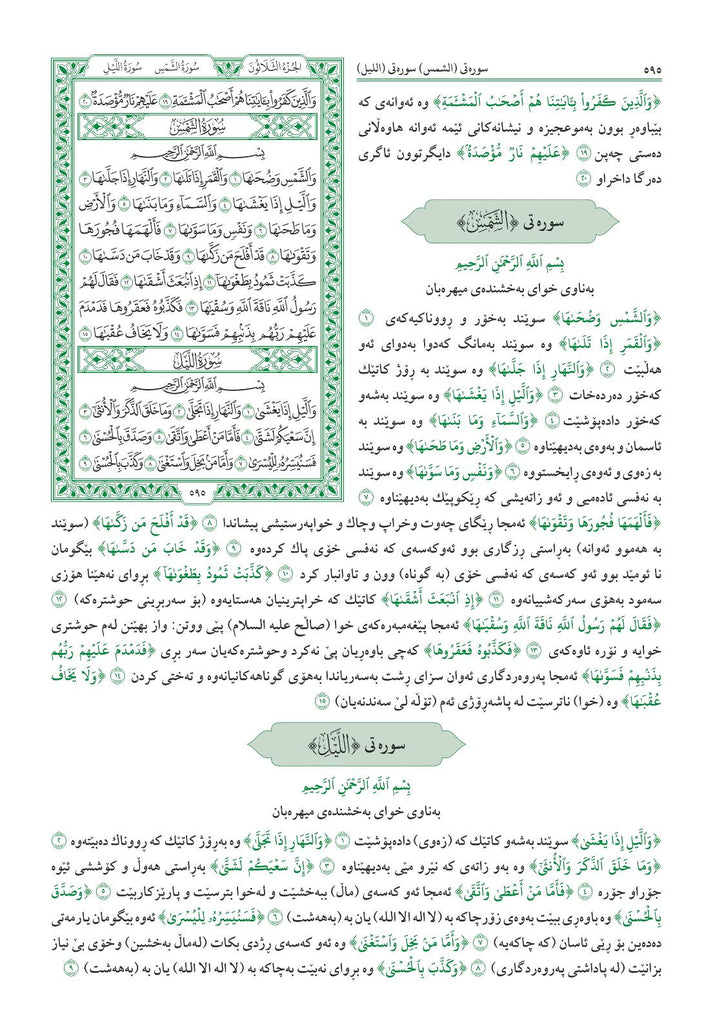 ٥٩٥
سورەتی (الشمس) سورەتی (اللیل)
﴿وَٱلَّذِينَ كَفَرُواْ بِـَٔايَـٰتِنَا هُمْ أَصْحَـٰبُ ٱلْمَشْـَٔمَةِ﴾ وە ئەوانەی کە
بێباوەڕ بوون بەموعجیزە و نیشانەکانی ئێمە ئەوانە هاوەڵانی
دەستی چەپن ١٩ ﴿عَلَيْهِمْ نَارٌ مُّؤْصَدَةٌ﴾ دایگرتوون ئاگری
دەرگا داخراو ٢٠
سورەتی ﴿الشَّمْسِ﴾
بِسْمِ ٱللَّهِ ٱلرَّحْمَـٰنِ ٱلرَّحِيمِ
بەناوی خوای بەخشندەی میهرەبان
﴿وَٱلشَّمْسِ وَضُحَىٰهَا﴾ سوێند بەخۆر و ڕووناکیەکەی ١
﴿وَٱلْقَمَرِ إِذَا تَلَىٰهَا﴾ وە سوێند بەمانگ کەدوا بەدوای ئەو
هەڵبێت ٢ ﴿وَٱلنَّهَارِ إِذَا جَلَّىٰهَا﴾ وە سوێند بە ڕۆژ کاتێك
کەخۆر دەردەخات ٣ ﴿وَٱلَّيْلِ إِذَا يَغْشَىٰهَا﴾ وە سوێند بەشەو
کەخۆر دادەپۆشێت ٤ ﴿وَٱلسَّمَآءِ وَمَا بَنَىٰهَا﴾ وە سوێند بە
ئاسمان و بەوەی بەدیهێناوە ٥ ﴿وَٱلْأَرْضِ وَمَا طَحَىٰهَا﴾ وە سوێند
بە زەوی و ئەوەی ڕایخستووە ٦ ﴿وَنَفْسٍ وَمَا سَوَّىٰهَا﴾ وە سوێند
بە نەفسی ئادەمیی و ئەو زاتەیشی کە ڕێکوپێك بەدیهێناوە ٧
﴿فَأَلْهَمَهَا فُجُورَهَا وَتَقْوَىٰهَا﴾ ئەمجا ڕێگای چەوت وخراپ وچاك و خواپەرستیشی پیشاندا ٨ ﴿قَدْ أَفْلَحَ مَن زَكَّىٰهَا﴾ (سوێند
بە هەموو ئەوانە) بەڕاستی ڕزگاری بوو ئەوکەسەی کە نەفسی خۆی پاك کردەوە ٩ ﴿وَقَدْ خَابَ مَن دَسَّىٰهَا﴾ بێگومان
نا ئومێد بوو ئەو کەسەی کە نەفسی خۆی (بە گوناە) وون و تاوانبار کرد ١٠ ﴿كَذَّبَتْ ثَمُودُ بِطَغْوَىٰهَآ﴾ بڕوای نەهێنا هۆزی
سەمود بەهۆی سەرکەشییانەوە ١١ ﴿إِذِ ٱنۢبَعَثَ أَشْقَىٰهَا﴾ کاتێك کە خراپترینیان هەستایەوە (بۆ سەربڕینی حوشترەکە) ١٢
﴿فَقَالَ لَهُمْ رَسُولُ ٱللَّهِ نَاقَةَ ٱللَّهِ وَسُقْيَـٰهَا﴾ ئەمجا پێغەمبەرەکەی خوا (صاڵح علیە السلام) پێی ووتن: واز بهێنن لەم حوشتری
خوایە و نۆرە ئاوەکەی ١٣ ﴿فَكَذَّبُوهُ فَعَقَرُوهَا﴾ کەچی باوەڕیان پێ نەکرد وحوشترەکەیان سەر بڕی ﴿فَدَمْدَمَ عَلَيْهِمْ رَبُّهُم
بِذَنۢبِهِمْ فَسَوَّىٰهَا﴾ ئەمجا پەروەردگاری ئەوان سزای ڕشت بەسەریاندا بەهۆی گوناهەکانیانەوە و تەختی کردن ١٤ ﴿وَلَا يَخَافُ
عُقْبَـٰهَا﴾ وە (خوا) ناترسێت لە پاشەڕۆژی ئەم (تۆڵە لێ سەندنەیان) ١٥
سورەتی ﴿اللَّيْلِ﴾
بِسْمِ ٱللَّهِ ٱلرَّحْمَـٰنِ ٱلرَّحِيمِ
بەناوی خوای بەخشندەی میهرەبان
﴿وَٱلَّيْلِ إِذَا يَغْشَىٰ﴾ سوێند بەشەو کاتێك کە (زەوی) دادەپۆشێت ١ ﴿وَٱلنَّهَارِ إِذَا تَجَلَّىٰ﴾ وە بەڕۆژ کاتێك کە ڕووناك دەبێتەوە ٢
﴿وَمَا خَلَقَ ٱلذَّكَرَ وَٱلْأُنثَىٰٓ﴾ وە بەو زاتەی کە نێرو مێی بەدیهێناوە ٣ ﴿إِنَّ سَعْيَكُمْ لَشَتَّىٰ﴾ بەڕاستی هەوڵ و کۆششی ئێوە
جۆراو جۆرە ٤ ﴿فَأَمَّا مَنْ أَعْطَىٰ وَٱتَّقَىٰ﴾ ئەمجا ئەو کەسەی (ماڵ) ببەخشێت و لەخوا بترسێت و پارێزکاربێت ٥ ﴿وَصَدَّقَ
بِٱلْحُسْنَىٰ﴾ وە باوەڕی ببێت بەوەی زۆرچاکە بە (لا الە الا اللە) یان بە (بەهەشت) ٦ ﴿فَسَنُيَسِّرُهُۥ لِلْيُسْرَىٰ﴾ ئەوە بێگومان یارمەتی
دەدەین بۆ ڕێی ئاسان (کە چاکەیە) ٧ ﴿وَأَمَّا مَنۢ بَخِلَ وَٱسْتَغْنَىٰ﴾ وە ئەو کەسەی ڕژدی بکات (لەماڵ بەخشین) وخۆی بێ نیاز
بزانێت (لە پاداشتی پەروەردگاری) ٨ ﴿وَكَذَّبَ بِٱلْحُسْنَىٰ﴾ وە بڕوای نەبێت بەچاکە بە (لا الە الا اللە) یان بە (بەهەشت) ٩
الجُزْءُ الثَّلَاثُونَ سُورَةُ الشَّمْسِ سُورَةُ اللَّيْلِ
وَٱلَّذِينَ كَفَرُواْ بِـَٔايَـٰتِنَا هُمْ أَصْحَـٰبُ ٱلْمَشْـَٔمَةِ ١٩ عَلَيْهِمْ نَارٌ مُّؤْصَدَةٌ ٢٠
سُورَةُ الشَّمْسِ
بِسْمِ ٱللَّهِ ٱلرَّحْمَـٰنِ ٱلرَّحِيمِ
وَٱلشَّمْسِ وَضُحَىٰهَا ١ وَٱلْقَمَرِ إِذَا تَلَىٰهَا ٢ وَٱلنَّهَارِ إِذَا جَلَّىٰهَا ٣
وَٱلَّيْلِ إِذَا يَغْشَىٰهَا ٤ وَٱلسَّمَآءِ وَمَا بَنَىٰهَا ٥ وَٱلْأَرْضِ
وَمَا طَحَىٰهَا ٦ وَنَفْسٍ وَمَا سَوَّىٰهَا ٧ فَأَلْهَمَهَا فُجُورَهَا
وَتَقْوَىٰهَا ٨ قَدْ أَفْلَحَ مَن زَكَّىٰهَا ٩ وَقَدْ خَابَ مَن دَسَّىٰهَا ١٠
كَذَّبَتْ ثَمُودُ بِطَغْوَىٰهَآ ١١ إِذِ ٱنۢبَعَثَ أَشْقَىٰهَا ١٢ فَقَالَ لَهُمْ
رَسُولُ ٱللَّهِ نَاقَةَ ٱللَّهِ وَسُقْيَـٰهَا ١٣ فَكَذَّبُوهُ فَعَقَرُوهَا فَدَمْدَمَ
عَلَيْهِمْ رَبُّهُم بِذَنۢبِهِمْ فَسَوَّىٰهَا ١٤ وَلَا يَخَافُ عُقْبَـٰهَا ١٥
سُورَةُ اللَّيْلِ
بِسْمِ ٱللَّهِ ٱلرَّحْمَـٰنِ ٱلرَّحِيمِ
وَٱلَّيْلِ إِذَا يَغْشَىٰ ١ وَٱلنَّهَارِ إِذَا تَجَلَّىٰ ٢ وَمَا خَلَقَ ٱلذَّكَرَ وَٱلْأُنثَىٰٓ ٣
إِنَّ سَعْيَكُمْ لَشَتَّىٰ ٤ فَأَمَّا مَنْ أَعْطَىٰ وَٱتَّقَىٰ ٥ وَصَدَّقَ بِٱلْحُسْنَىٰ ٦
فَسَنُيَسِّرُهُۥ لِلْيُسْرَىٰ ٧ وَأَمَّا مَنۢ بَخِلَ وَٱسْتَغْنَىٰ ٨ وَكَذَّبَ بِٱلْحُسْنَىٰ ٩
٥٩٥